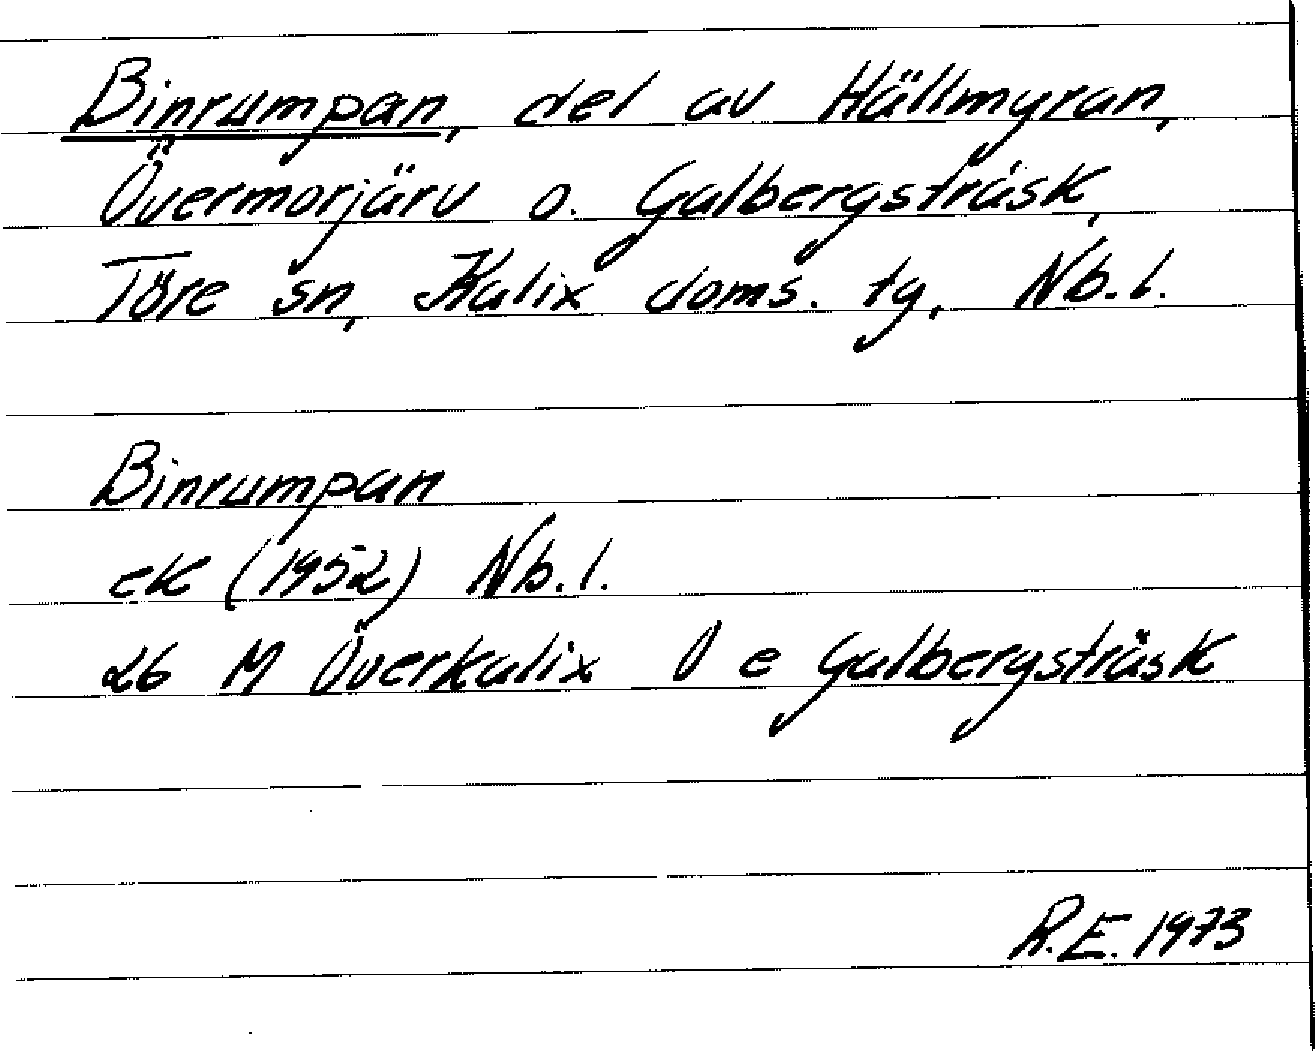 Binrumpan, del av Hällmyran,
Övermorjärv o. Galbergsträsk,
Töre sn, Kalix doms. tg, Nb.l.
Binrumpan
ek (1952) Nb.l.
26 M Överkalix O e Galbergsträsk
R.E. 1973